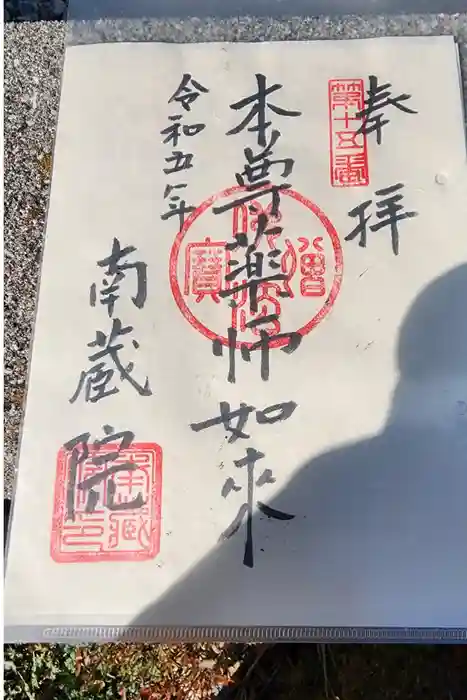 奉拝
第十五番
本尊薬師如来
佛法僧寳
令和五年
南蔵院